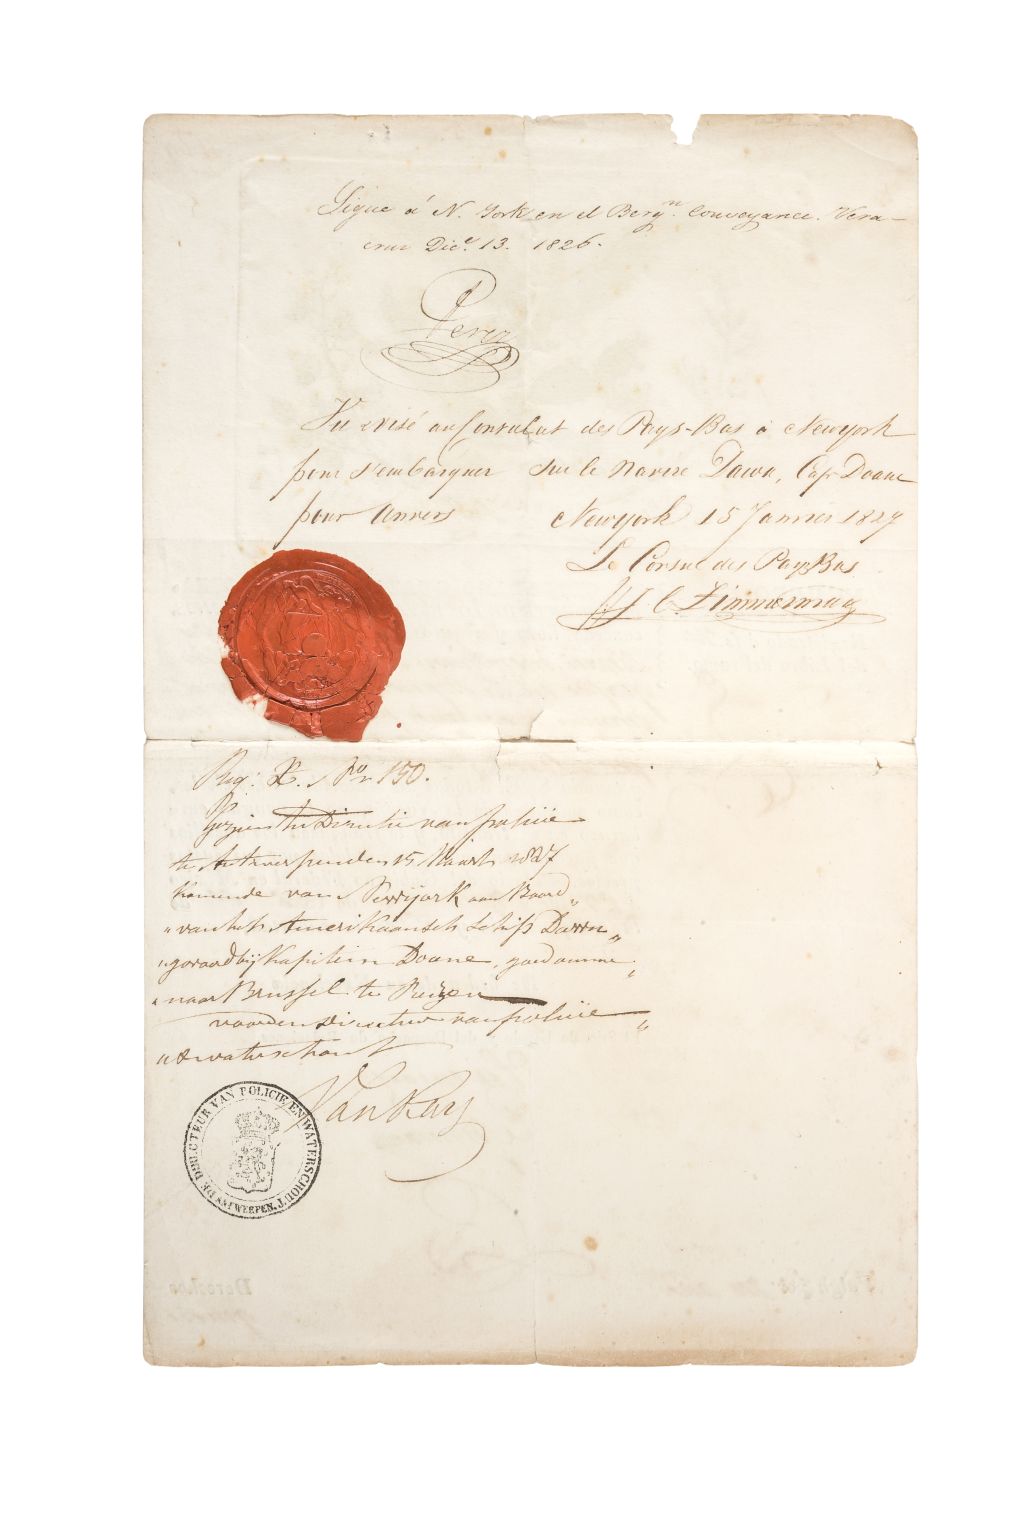 Sigue á N. York en el Bergn. Conveyance. Vera-
cruz Dice. 13. 1826.
Perez
Vu & visé au Consulat des Pays-Bas à Newyork
pour s'embarquer sur le navire Dawn, Cap Doane
pour Anvers Newyork 15 Janvier 1827
Le Consul des Pays Bas
J C Zimmerman
Reg: No 150.
Gezien ter Directie van policie
te Antwerpen den 15 Maart 1827
komende van Newijork aan Boord
van het Amerikaansch schip Dawn
gevoerd bij Kapitein Doane,
naar Brussel te Reizen
voor den directeur van policie
& waterschout
Van Kay
DE DIRECTEUR VAN POLICIE EN WATERSCHOUT TE ANTWERPEN.
Derechos